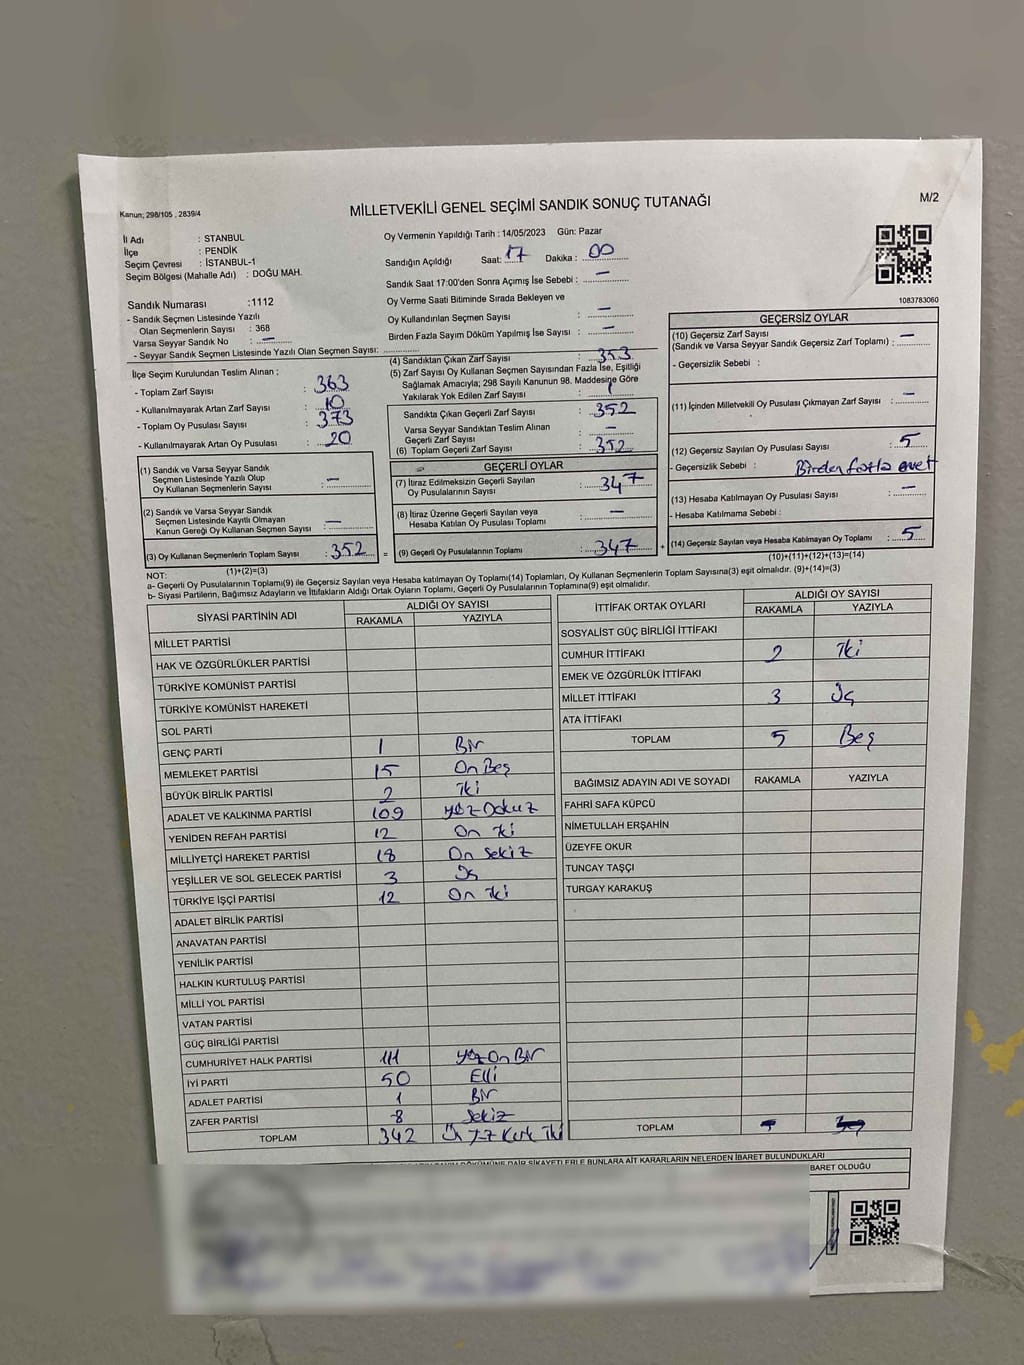 Kanun; 298/105 , 2839/4
MİLLETVEKİLİ GENEL SEÇİMİ SANDIK SONUÇ TUTANAĞI
M/2
İl Adı : STANBUL
İlçe : PENDİK
Seçim Çevresi : İSTANBUL-1
Seçim Bölgesi (Mahalle Adı) : DOĞU MAH.
Sandık Numarası :1112
- Sandık Seçmen Listesinde Yazılı
Olan Seçmenlerin Sayısı : 368
Varsa Seyyar Sandık No : —
- Seyyar Sandık Seçmen Listesinde Yazılı Olan Seçmen Sayısı:
İlçe Seçim Kurulundan Teslim Alınan ;
- Toplam Zarf Sayısı : 363
- Kullanılmayarak Artan Zarf Sayısı : 10
- Toplam Oy Pusulası Sayısı : 373
- Kullanılmayarak Artan Oy Pusulası : 20
(1) Sandık ve Varsa Seyyar Sandık
Seçmen Listesinde Yazılı Olup
Oy Kullanan Seçmenlerin Sayısı : —
(2) Sandık ve Varsa Seyyar Sandık
Seçmen Listesinde Kayıtlı Olmayan
Kanun Gereği Oy Kullanan Seçmen Sayısı : —
(3) Oy Kullanan Seçmenlerin Toplam Sayısı : 352
(1)+(2)=(3)
Oy Vermenin Yapıldığı Tarih : 14/05/2023 Gün: Pazar
Sandığın Açıldığı Saat: 17 Dakika : 00
Sandık Saat 17:00'den Sonra Açımış İse Sebebi : —
Oy Verme Saati Bitiminde Sırada Bekleyen ve
Oy Kullandırılan Seçmen Sayısı : —
Birden Fazla Sayım Döküm Yapılmış İse Sayısı : —
(4) Sandıktan Çıkan Zarf Sayısı : 353
(5) Zarf Sayısı Oy Kullanan Seçmen Sayısından Fazla İse, Eşitliği
Sağlamak Amacıyla; 298 Sayılı Kanunun 98. Maddesine Göre
Yakılarak Yok Edilen Zarf Sayısı : 1
Sandıkta Çıkan Geçerli Zarf Sayısı : 352
Varsa Seyyar Sandıktan Teslim Alınan
Geçerli Zarf Sayısı : —
(6) Toplam Geçerli Zarf Sayısı : 352
GEÇERLİ OYLAR
(7) İtiraz Edilmeksizin Geçerli Sayılan
Oy Pusulalarının Sayısı : 347
(8) İtiraz Üzerine Geçerli Sayılan veya
Hesaba Katılan Oy Pusulası Toplamı : —
= (9) Geçerli Oy Pusulalarının Toplamı : 347 +
1083783060
GEÇERSİZ OYLAR
(10) Geçersiz Zarf Sayısı
(Sandık ve Varsa Seyyar Sandık Geçersiz Zarf Toplamı) : —
- Geçersizlik Sebebi :
(11) İçinden Milletvekili Oy Pusulası Çıkmayan Zarf Sayısı : —
(12) Geçersiz Sayılan Oy Pusulası Sayısı : 5
- Geçersizlik Sebebi : Birden fazla evet
(13) Hesaba Katılmayan Oy Pusulası Sayısı : —
- Hesaba Katılmama Sebebi :
(14) Geçersiz Sayılan veya Hesaba Katılmayan Oy Toplamı : 5
(10)+(11)+(12)+(13)=(14)
NOT:
a- Geçerli Oy Pusulalarının Toplamı(9) ile Geçersiz Sayılan veya Hesaba katılmayan Oy Toplamı(14) Toplamları, Oy Kullanan Seçmenlerin Toplam Sayısına(3) eşit olmalıdır. (9)+(14)=(3)
b- Siyasi Partilerin, Bağımsız Adayların ve İttifakların Aldığı Ortak Oyların Toplamı, Geçerli Oy Pusulalarının Toplamına(9) eşit olmalıdır.
SİYASİ PARTİNİN ADI ALDIĞI OY SAYISI
RAKAMLA YAZIYLA
MİLLET PARTİSİ
HAK VE ÖZGÜRLÜKLER PARTİSİ
TÜRKİYE KOMÜNİST PARTİSİ
TÜRKİYE KOMÜNİST HAREKETİ
SOL PARTİ
GENÇ PARTİ 1 Bir
MEMLEKET PARTİSİ 15 On Beş
BÜYÜK BİRLİK PARTİSİ 2 İki
ADALET VE KALKINMA PARTİSİ 109 yüz Dokuz
YENİDEN REFAH PARTİSİ 12 On İki
MİLLİYETÇİ HAREKET PARTİSİ 18 On Sekiz
YEŞİLLER VE SOL GELECEK PARTİSİ 3 Üç
TÜRKİYE İŞÇİ PARTİSİ 12 On İki
ADALET BİRLİK PARTİSİ
ANAVATAN PARTİSİ
YENİLİK PARTİSİ
HALKIN KURTULUŞ PARTİSİ
MİLLİ YOL PARTİSİ
VATAN PARTİSİ
GÜÇ BİRLİĞİ PARTİSİ
CUMHURİYET HALK PARTİSİ 111 yüz On Bir
İYİ PARTİ 50 Elli
ADALET PARTİSİ 1 Bir
ZAFER PARTİSİ 8 Sekiz
TOPLAM 342 Üç Kırk İki
İTTİFAK ORTAK OYLARI ALDIĞI OY SAYISI
RAKAMLA YAZIYLA
SOSYALİST GÜÇ BİRLİĞİ İTTİFAKI
CUMHUR İTTİFAKI 2 İki
EMEK VE ÖZGÜRLÜK İTTİFAKI
MİLLET İTTİFAKI 3 Üç
ATA İTTİFAKI
TOPLAM 5 Beş
BAĞIMSIZ ADAYIN ADI VE SOYADI RAKAMLA YAZIYLA
FAHRİ SAFA KÜPCÜ
NİMETULLAH ERŞAHİN
ÜZEYFE OKUR
TUNCAY TAŞÇI
TURGAY KARAKUŞ
TOPLAM
DÖKÜMÜNE DAİR ŞİKAYETLERLE BUNLARA AİT KARARLARIN NELERDEN İBARET BULUNDUKLARI
BARET OLDUĞU